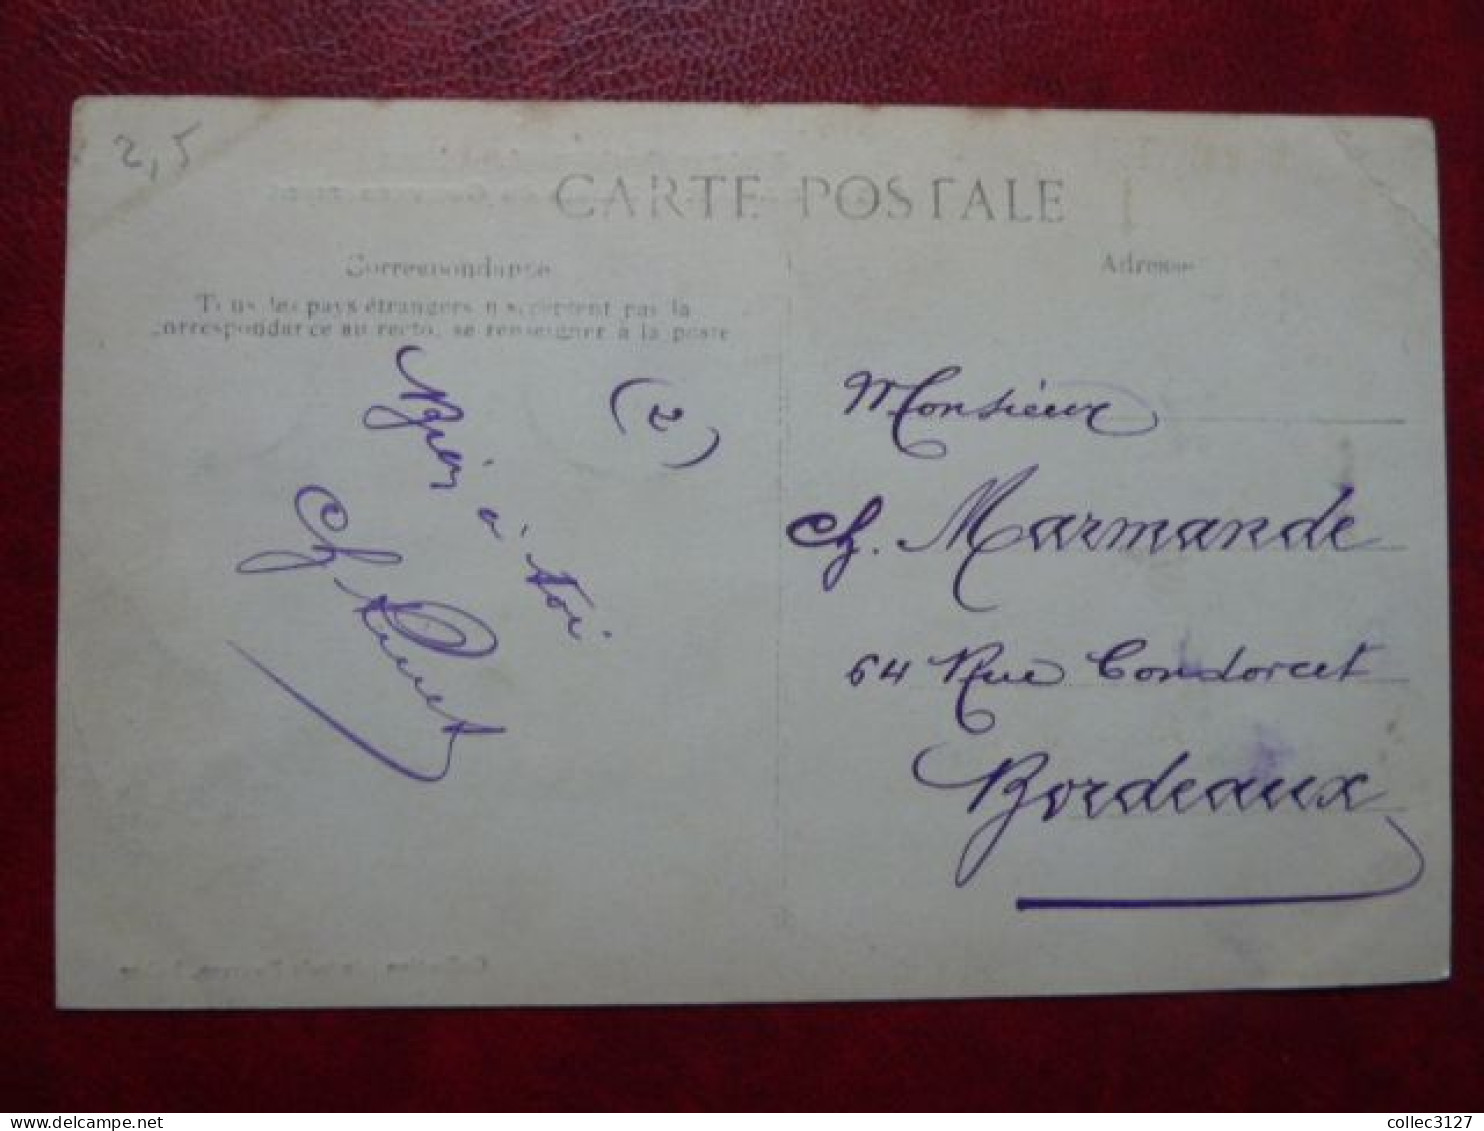 2,5
CARTE POSTALE
Correspondance
Adresse
Tous les pays étrangers n'acceptent pas la
correspondance au recto, se renseigner à la poste
(2)
Bien à toi
Ch.
Monsieur
Ch. Marmande
64 Rue Condorcet
Bordeaux
collec3127